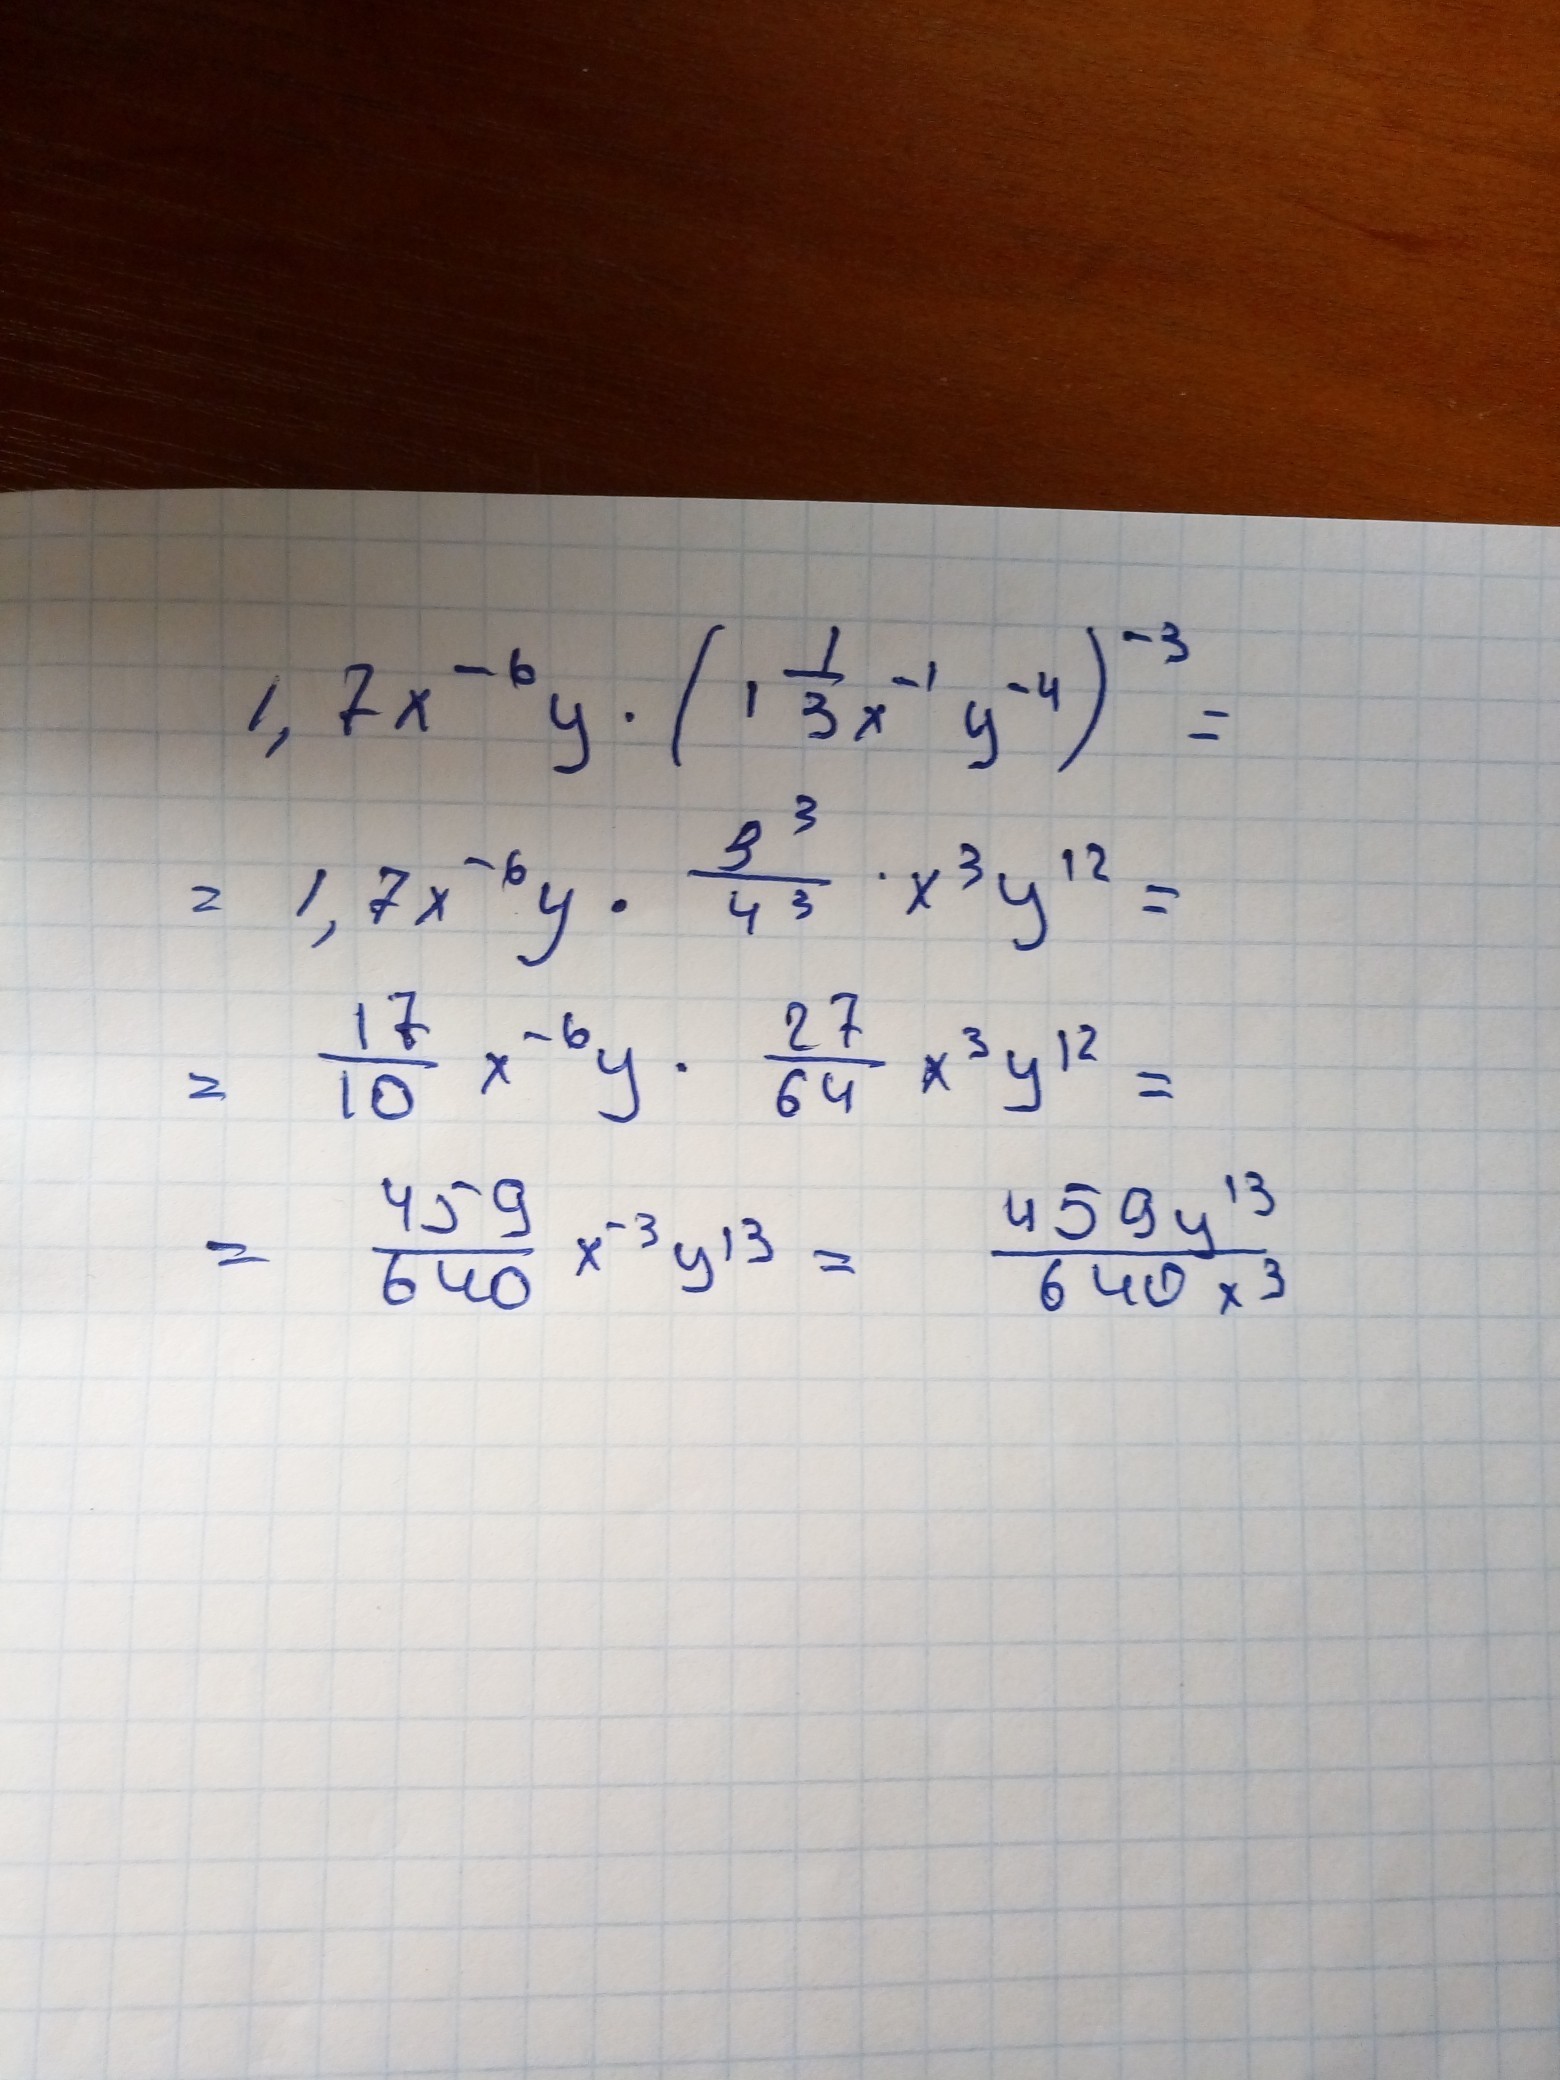 1,7x⁻⁶y · (1 1/3 x⁻¹ y⁻⁴)⁻³ =
= 1,7x⁻⁶y · 3³/4³ · x³y¹² =
= 17/10 x⁻⁶y · 27/64 x³y¹² =
= 459/640 x⁻³y¹³ = 459y¹³/640x³